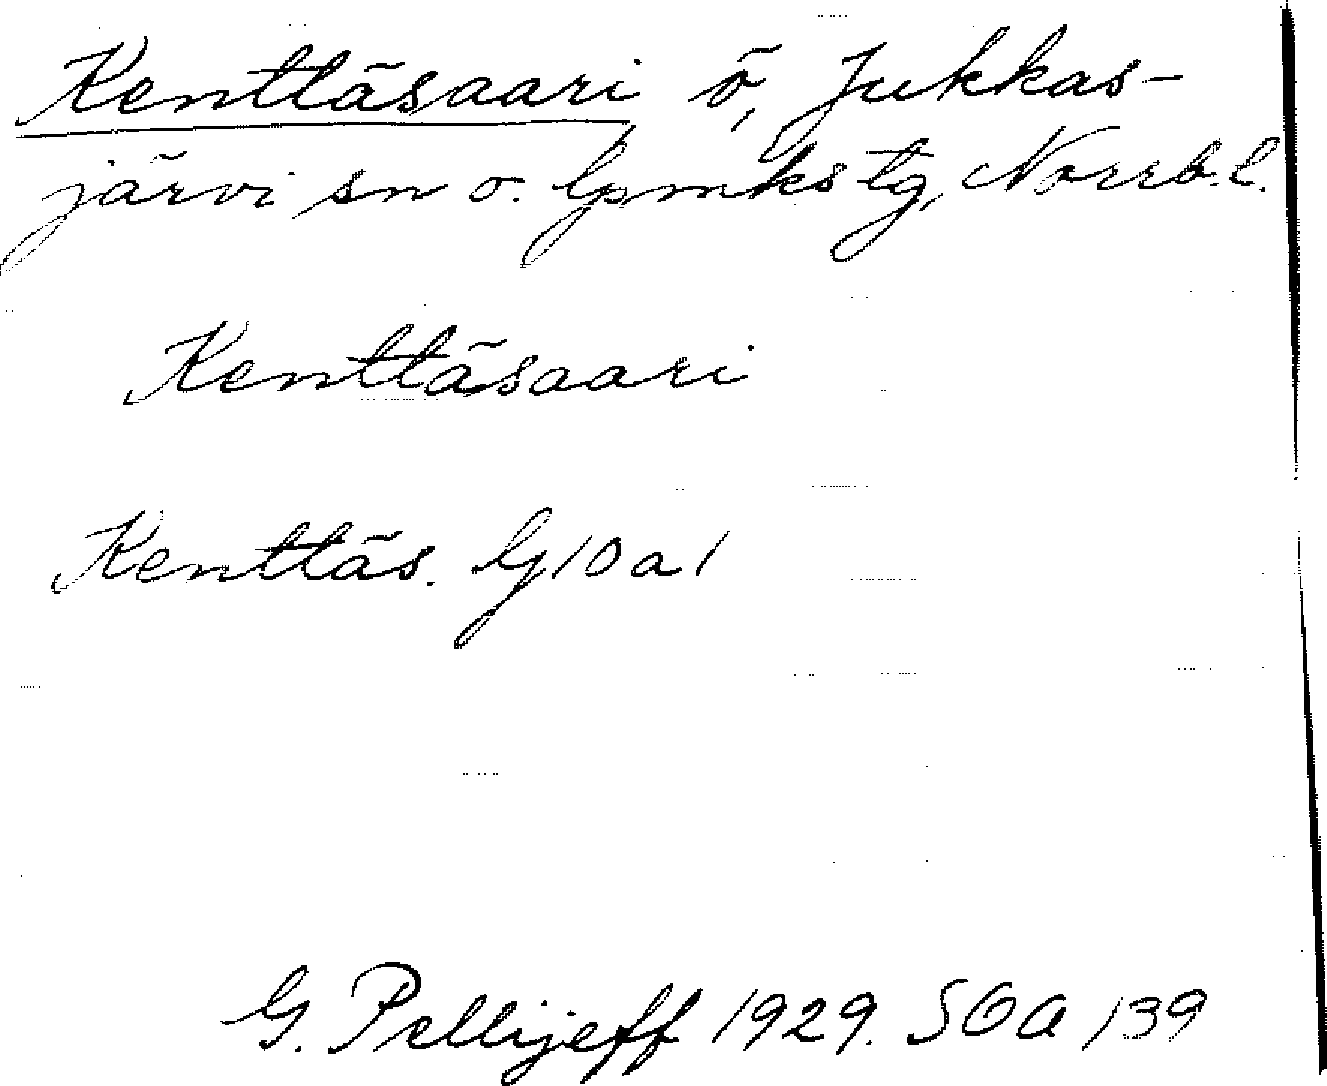 Kenttäsaari ö, Jukkas-
järvi sn o. lpmks tg, Norrb. l.
Kenttäsaari
Kenttäs. G10a1
G. Pellijeff 1929. SOA 139